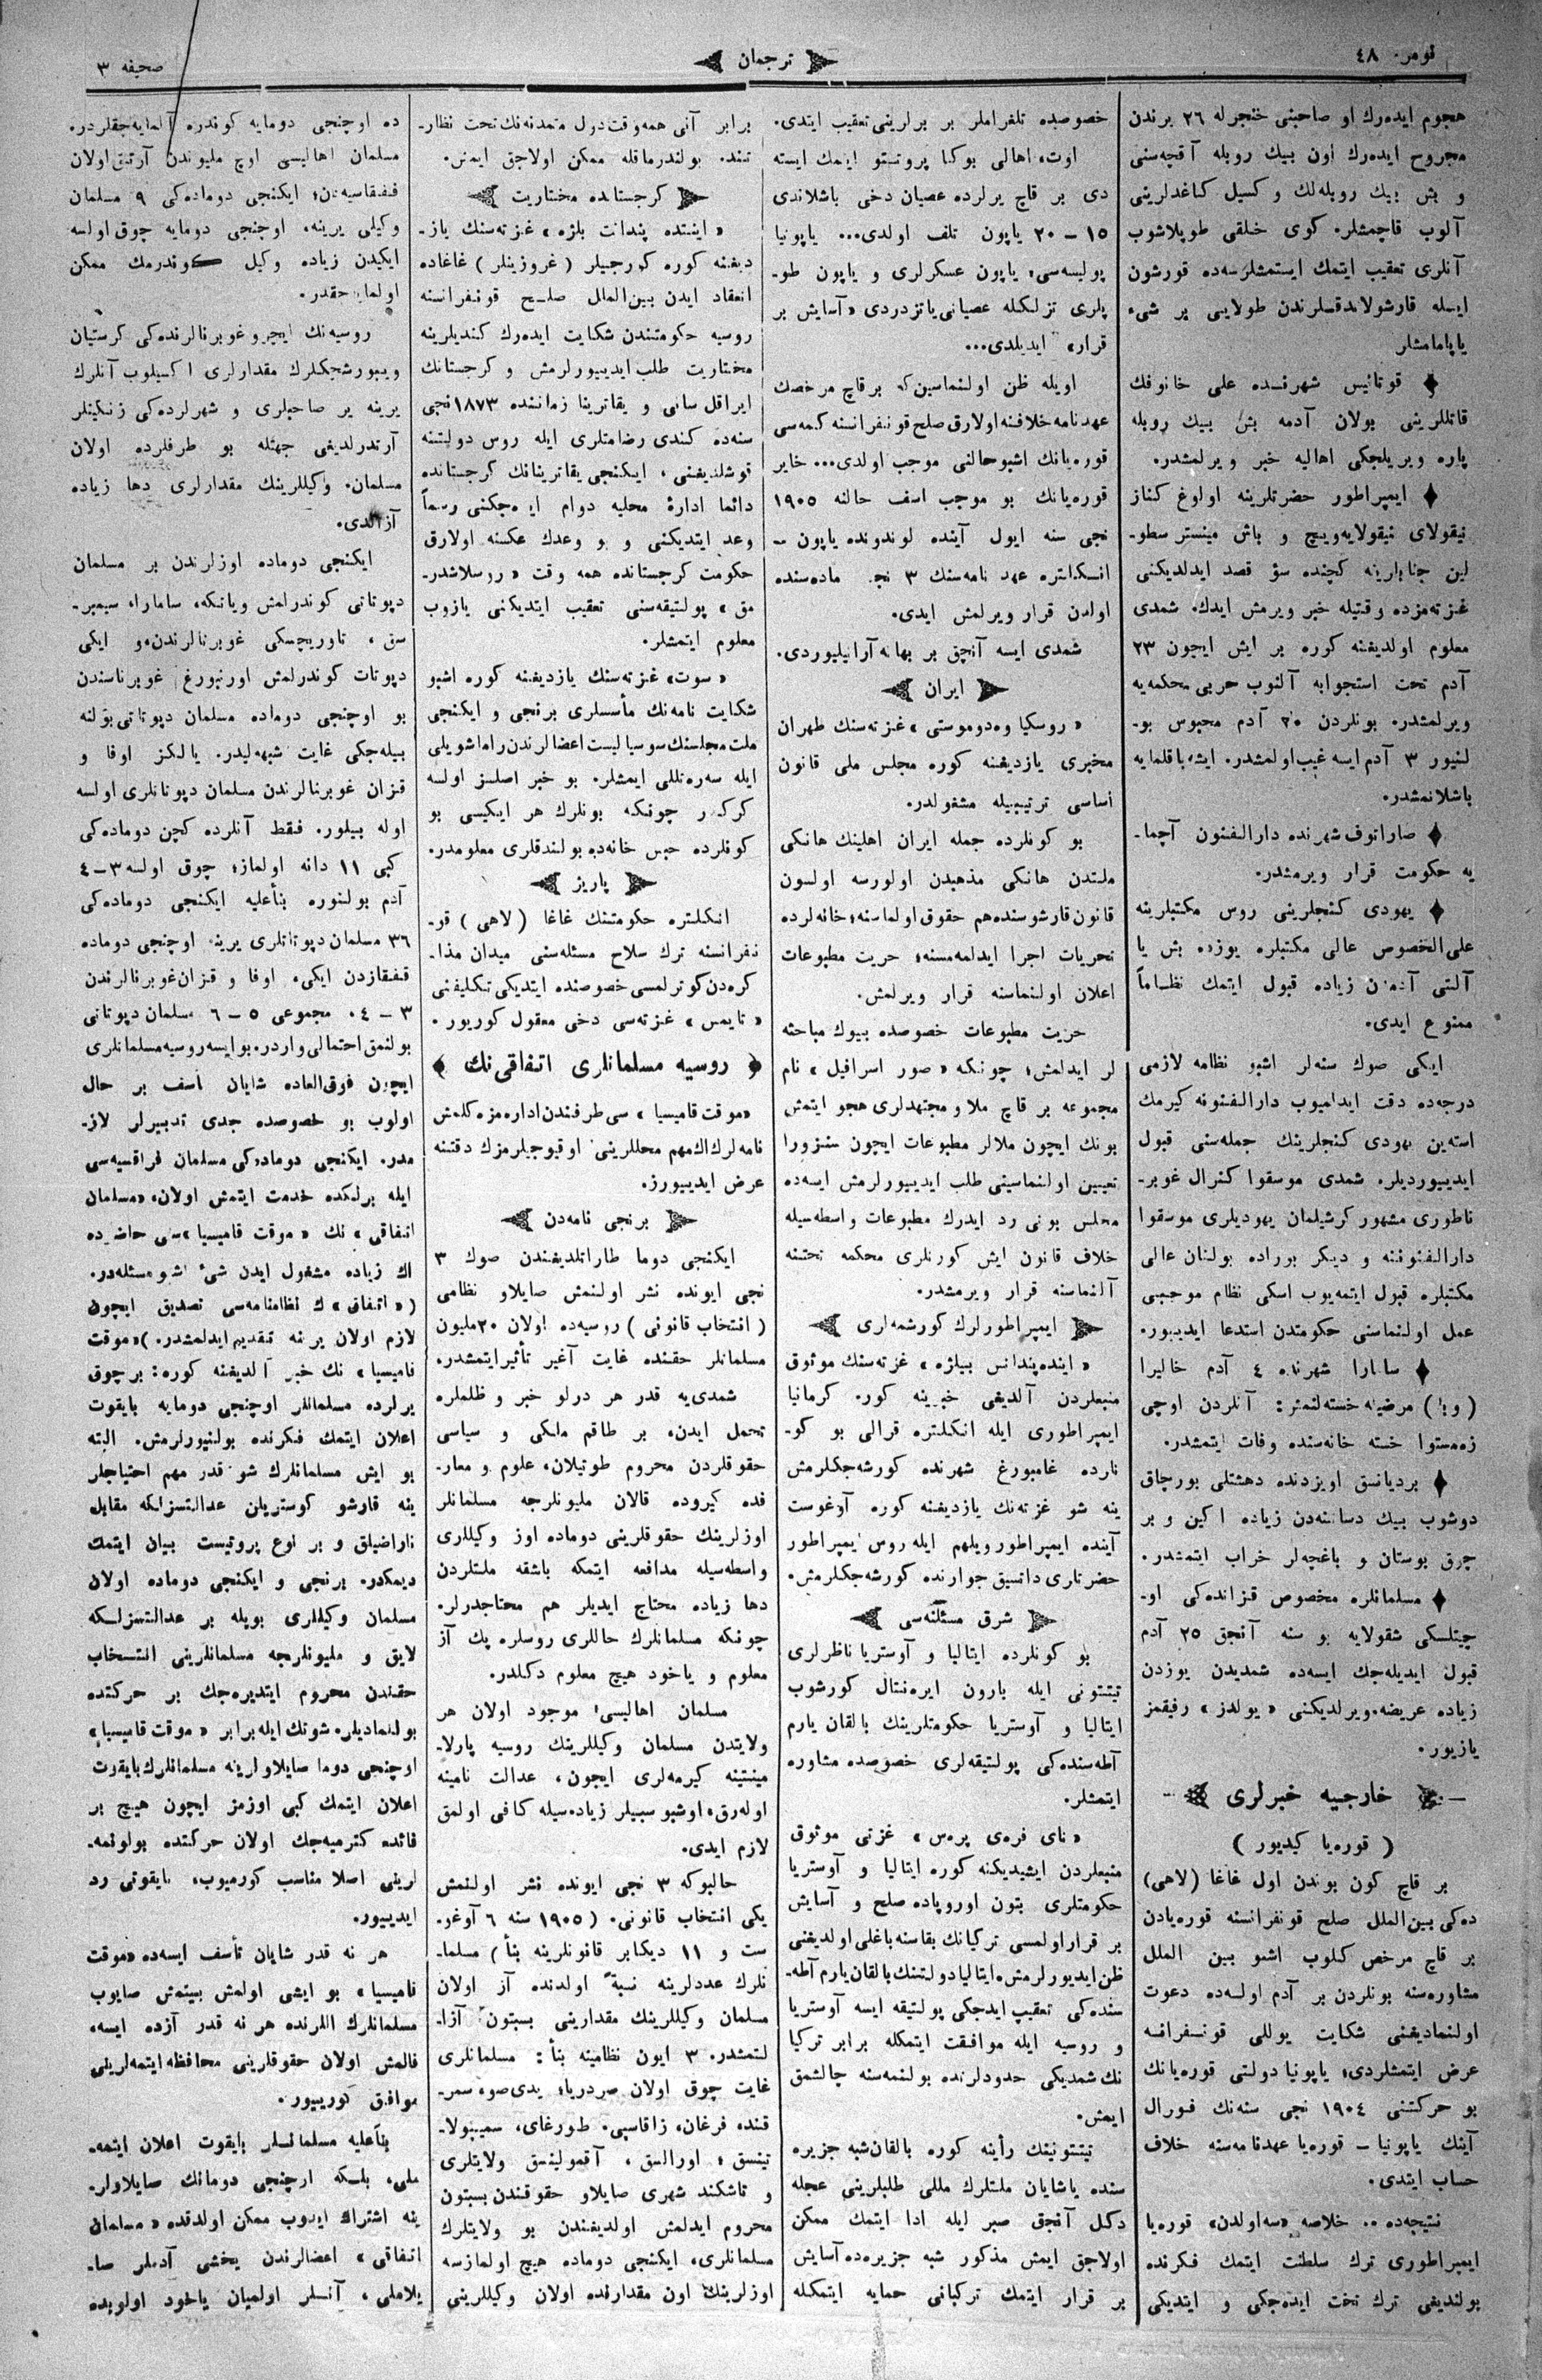 نومر. ٤٨
ترجمان
صحیفه ٣
هجوم ایده‌رك او صاحبنی خنجرله ٢٦ یرندن
مجروح ایده‌رك اون بیك روبله آقچه‌سنی
و بش بیك روبله‌لك و كسیل كاغدلرینی
آلوب قاچمشلر. كوی خلقی طوپلاشوب
آنلری تعقیب ایتمك ایستمشلرسه‌ده قورشون
ایسله قارشولاندقلرندن طولایی بر شیء
یاپامامشلر
قوتائیس شهرنده علی خانوفك
قاتللرینی بولان آدمه بش بیك روبله
پاره ویریلجكی اهالیه خبر ویرلمشدر.
ایمپراطور حضرتلرینه اولوغ كناز
نیقولای نیقولایه‌ویچ و باش مینستر سطو-
لین جنابلرینه كچنده سؤ قصد ایدلدیكنی
غزته‌مزده وقتیله خبر ویرمش ایدك. شمدی
معلوم اولدیغنه كوره بر ایش ایچون ٢٣
آدم تحت استجوابه آلنوب حربی محكمه‌یه
ویرلمشدر. بونلردن ٢٠ آدم محبوس بو-
لنیور ٣ آدم ایسه غیب اولمشدر. ایشه باقلمایه
باشلانمشدر.
صاراتوف شهرنده دارالفنون آچما-
یه حكومت قرار ویرمشدر.
یهودی كنجلرینی روس مكتبلرینه
علی‌الخصوص عالی مكتبلره یوزده بش یا
آلتی آدمدن زیاده قبول ایتمك نظاماً
ممنوع ایدی.
ایكی صوك سنه‌لر اشبو نظامه لازمی
درجه‌ده دقت ایدلمیوب دارالفنونه كیرمك
استه‌ین یهودی كنجلرینك جمله‌سنی قبول
ایدییوردیلر. شمدی موسقوا كنرال غوبر-
ناطوری مشهور كرشیلمان یهودیلری موسقوا
دارالفنوننه و دیكر بوراده بولنان عالی
مكتبلره قبول ایتمه‌یوب اسكی نظام موجبی
عمل اولنماسنی حكومتدن استدعا ایدییور.
سامارا شهرنده ٤ آدم خالیرا
(وبا) مرضینه خسته‌لنمش: آنلردن اوچی
زه‌مستوا خسته خانه‌سنده وفات ایتمشدر.
بردیانسق اویزدنده دهشتلی بورچاق
دوشوب بیك دساتنه‌دن زیاده اكین و بر
چوق بوستان و باغچه‌لر خراب ایتمشدر.
مسلمانلره مخصوص قزانده‌كی او-
چیتلسكی شقولایه بو سنه آنجق ٢٥ آدم
قبول ایدیله‌جك ایسه‌ده شمدیدن یوزدن
زیاده عریضه ویرلدیكنی «یولدز» رفیقمز
یازیور.
خارجیه خبرلری
( قوره‌یا كیدیور )
بر قاچ كون بوندن اول غاغا (لاهی)
ده‌كی بین‌الملل صلح قونفرانسنه قوره‌یادن
بر قاچ مرخص كلوب اشبو بین الملل
مشاوره‌سنه بونلردن بر آدم اولسه‌ده دعوت
اولنمادیغنی شكایت یوللی قونفرانسه
عرض ایتمشلردی؛ یاپونیا دولتی قوره‌یانك
بو حركتنی ١٩٠٤ نجی سنه‌نك فورال
آینك یاپونیا – قوره‌یا عهدنامه‌سنه خلاف
حساب ایتدی.
نتیجه‌ده .. خلاصه «سه‌اولدن» قوره‌یا
ایمپراطوری ترك سلطنت ایتمك فكرنده
بولندیغی ترك تخت ایده‌جكی و ایتدیكی
خصوصده تلغراملر بر برلرینی تعقیب ایتدی.
اوت، اهالی بوكا پروتستو ایتمك ایسته
دی بر قاچ یرلرده عصیان دخی باشلاندی
١٥ – ٢٠ یاپون تلف اولدی... یاپونیا
پولیسه‌سی؛ یاپون عسكرلری و یاپون طو-
پلری تزلكله عصیانی یاتزدردی «آسایش بر
قرار» ایدیلدی...
اویله ظن اولنماسین‌كه بر قاچ مرخصك
عهدنامه خلافنه اولارق صلح قونفرانسنه كلمه‌سی
قوره‌یانك اشبو حالنی موجب اولدی... خایر
قوره‌یانك بو موجب اسف حالنه ١٩٠٥
نجی سنه ایول آینده لوندونده یاپون –
انكلتره عهدنامه‌سنك ٣ نجی ماده‌سنده
اولدن قرار ویرلمش ایدی.
شمدی ایسه آنجق بر بهانه آرانیلیوردی.
ایران
«روسكیا وه‌دوموستی» غزته‌سنك طهران
مخبری یازدیغنه كوره مجلس ملی قانون
اساسی ترتیبیله مشغولدر.
بو كونلرده جمله ایران اهلینك هانكی
ملتدن هانكی مذهبدن اولورسه اولسون
قانون قارشوسنده هم حقوق اولماسنه؛ خانه‌لرده
تحریات اجرا ایدلمه‌مسنه؛ حریت مطبوعات
اعلان اولنماسنه قرار ویرلمش.
حریت مطبوعات خصوصده بیوك مباحثه
لر ایدلمش؛ چونكه «صور اسرافیل» نام
مجموعه بر قاچ ملا و مجتهدلری هجو ایتمش
بونك ایچون ملالر مطبوعات ایچون سنزورا
تعیین اولنماسینی طلب ایدییورلرمش ایسه‌ده
مجلس بونی رد ایدرك مطبوعات واسطه‌سیله
خلاف قانون ایش كورنلری محكمه تحتنه
آلنماسنه قرار ویرمشدر.
ایمپراطورلرك كورشمه‌لری
«اینده‌پندانس بیلژه» غزته‌سنك موثوق
منبعلردن آلدیغی خبرینه كوره كرمانیا
ایمپراطوری ایله انكلتره قرالی بو كو-
نلرده غامبورغ شهرنده كورشه‌جكلرمش
ینه شو غزته‌نك یازدیغنه كوره آوغوست
آینده ایمپراطور ویلهم ایله روس ایمپراطور
حضرتلری دانسیق جوارنده كورشه‌جكلرمش.
شرق مسئله‌سی
بو كونلرده ایتالیا و آوستریا ناظرلری
تیتتونی ایله بارون ایره‌نتال كورشوب
ایتالیا و آوستریا حكومتلرینك بالقان یارم
آطه‌سنده‌كی پولتیقه‌لری خصوصده مشاوره
ایتمشلر.
«نای فره‌ی پره‌س» غزتی موثوق
منبعلردن ایشیدیكنه كوره ایتالیا و آوستریا
حكومتلری بتون اوروپاده صلح و آسایش
بر قرار اولمسی تركیانك بقاسنه باغلی اولدیغنی
ظن ایدیورلرمش، ایتالیا دولتنك بالقان یارم آطه-
سنده‌كی تعقیب ایدجكی پولتیقه ایسه آوستریا
و روسیه ایله موافقت ایتمكله برابر تركیا
نك شمدیكی حدودلرنده بولنمه‌سنه چالشمق
ایمش.
تیتتونینك رأینه كوره بالقان شبه جزیره
سنده یاشایان ملتلرك مللی طلبلرینی عجله
دكل آنجق صبر ایله ادا ایتمك ممكن
اولاجق ایمش مذكور شبه جزیره‌ده آسایش
بر قرار ایتمك تركیانی حمایه ایتمكله
برابر آنی همه‌وقت دول متمدنه‌نك تحت نظار-
تنده بولندرماقله ممكن اولاجق ایمش.
كرجستانده مختاریت
«اینده پندانت بلژه» غزته‌سنك یاز-
دیغنه كوره كورجیلر (غروزینلر) غاغاده
انعقاد ایدن بین‌الملل صلح قونفرانسنه
روسیه حكومتندن شكایت ایده‌رك كندیلرینه
مختاریت طلب ایدییورلرمش و كرجستانك
ایراقل سانی و یقاترینا زماننده ١٨٧٣ نجی
سنه‌ده كندی رضامتلری ایله روس دولتنه
قوشلندیغنی، ایكنجی یقاترینانك كرجستانده
دائما ادارۀ محلیه دوام ایده‌جكنی رسماً
وعد ایتدیكنی و بو وعدك عكسنه اولارق
حكومت كرجستانده همه وقت «روسلاشدر-
مق» پولتیقه‌سنی تعقیب ایتدیكنی یازوب
معلوم ایتمشلر.
«سوت» غزته‌سنك یازدیغنه كوره اشبو
شكایت نامه‌نك مأسسلری برنجی و ایكنجی
ملت مجلسنك سوسیالیست اعضالرندن راماشویلی
ایله سه‌ره‌تللی ایمشلر. بو خبر اصلسز اولسه
كركدر چونكه بونلرك هر ایكیسی بو
كونلرده حبس خانه‌ده بولندقلری معلومدر.
پاریز
انكلتره حكومتنك غاغا (لاهی) قو-
نفرانسنه ترك سلاح مسئله‌سنی میدان مذا-
كره‌دن كوترلمسی خصوصنده ایتدیكی تكلیفنی
«تایمس» غزته‌سی دخی معقول كوریور.
﴿ روسیه مسلمانلری اتفاقی‌نك ﴾
«موقت قامیسیا» سی طرفندن اداره‌مزه كلمش
نامه‌لرك اك مهم محللرینی اوقیوجیلرمزك دقتنه
عرض ایدییورز.
برنجی نامه‌دن
ایكنجی دوما طاراتلدیغندن صوك ٣
نجی ایونده نشر اولنمش صایلاو نظامی
(انتخاب قانونی) روسیه‌ده اولان ٢٠ ملیون
مسلمانلر حقنده غایت آغیر تأثیر ایتمشدر.
شمدی‌یه قدر هر درلو خبر و ظلملره
تحمل ایدن، بر طاقم ملكی و سیاسی
حقوقلردن محروم طوتیلان، علوم و معار-
فده كیروده قالان ملیونلرجه مسلمانلر
اوزلرینك حقوقلرینی دوماده اوز وكیللری
واسطه‌سیله مدافعه ایتمكه باشقه ملتلردن
دها زیاده محتاج ایدیلر هم محتاجدرلر.
چونكه مسلمانلرك حاللری روسلره پك آز
معلوم و یاخود هیچ معلوم دكلدر.
مسلمان اهالیسی موجود اولان هر
ولایتدن مسلمان وكیللرینك روسیه پارلا-
مینتینه كیرمه‌لری ایچون، عدالت نامینه
اوله‌رق، اوشبو سببلر زیاده‌سیله كافی اولمق
لازم ایدی.
حالبوكه ٣ نجی ایونده نشر اولنمش
یكی انتخاب قانونی. (١٩٠٥ سنه ٦ آوغو-
ست و ١١ دیكابر قانونلرینه بنأ) مسلما-
نلرك عددلرینه نسبةً اولدنده آز اولان
مسلمان وكیللرینك مقدارینی بسبتون آزا-
لتمشدر. ٣ ایون نظامینه بنأ: مسلمانلری
غایت چوق اولان صردریا؛ یدی‌صو، سمر-
قنده فرغان، زاقاسپی. طورغای، سمیپولا-
تینسق؛ اورالسق، آقمولینسق ولایتلری
و تاشكند شهری صایلاو حقوقندن بسبتون
محروم ایدلمش اولدیغندن بو ولایتلرك
مسلمانلری، ایكنجی دوماده هیچ اولمازسه
اوزلرینك اون مقدارنده اولان وكیللرینی
ده اوچنجی دومایه كوندره آلمایه‌جقلردر.
مسلمان اهالیسی اوچ ملیوندن آرتق اولان
قفقاسیه‌دن؛ ایكنجی دوماده‌كی ٩ مسلمان
وكیلی یرینه، اوچنجی دومایه چوق اولسه
ایكیدن زیاده وكیل كوندرمك ممكن
اولمایاجقدر.
روسیه‌نك ایچرو غوبرنالرنده‌كی كرستیان
ویبورشجكلرك مقدارلری اكسیلوب آنلرك
یرینه یر صاحبلری و شهرلرده‌كی زنكینلر
آرتدرلدیغی جهتله بو طرفلرده اولان
مسلمان، وكیللرینك مقدارلری دها زیاده
آزالدی.
ایكنجی دوماده اوزلرندن بر مسلمان
دپوتاتی كوندرلمش ویاتكه، سامارا، سیمبر-
سق، تاوریچسكی غوبرنالرندن، و ایكی
دپوتات كوندرلمش اورنبورغ غوبرناسندن
بو اوچنجی دوماده مسلمان دپوتاتی بولنه
بیله‌جكی غایت شبهه‌لیدر. یالكز اوفا و
قزان غوبرنالرندن مسلمان دپوتاتلری اولسه
اوله بیلور. فقط آنلرده كچن دوماده‌كی
كبی ١١ دانه اولماز؛ چوق اولسه ٣–٤
آدم بولنوره بنأعلیه ایكنجی دوماده‌كی
٣٦ مسلمان دپوتاتلری یرینه اوچنجی دوماده
قفقازدن ایكی، اوفا و قزان غوبرنالرندن
٣ – ٤. مجموعی ٥ – ٦ مسلمان دپوتاتی
بولنمق احتمالی واردر. بو ایسه روسیه مسلمانلری
ایچون فوق‌العاده شایان اسف بر حال
اولوب بو خصوصده جدی تدبیرلر لاز-
مدر. ایكنجی دوماده‌كی مسلمان فراقسیه‌سی
ایله برلكده خدمت ایتمش اولان، «مسلمان
اتفاقی» نك «موقت قامیسیا» سی حاضرده
اك زیاده مشغول ایدن شیٔ اشبو مسئله‌در.
(«اتفاق» ك نظامنامه‌سی تصدیق ایچون
لازم اولان یرینه تقدیم ایدلمشدر.) «موقت
قامیسیا» نك خبر آلدیغنه كوره: بر چوق
یرلرده مسلمانلر اوچنجی دومایه بایقوت
اعلان ایتمك فكرنده بولنیورلرمش. البته
بو ایش مسلمانلرك شو قدر مهم احتیاجلر
ینه قارشو كوستریلن عدالتسزلكه مقابل
ناراضیلق و بر نوع پروتیست بیان ایتمك
دیمكدر. برنجی و ایكنجی دوماده اولان
مسلمان وكیللری بویله بر عدالتسزلكه
لایق و ملیونلرجه مسلمانلرینی انتخاب
حقندن محروم ایتدیره‌جك بر حركتده
بولنمادیلر. شونك ایله برابر «موقت قامیسیا»
اوچنجی دوما صایلاولرینه مسلمانلرك بایقوت
اعلان ایتمك كبی اوزمز ایچون هیچ بر
فائده كترمیه‌جك اولان حركتده بولونمه-
لرینی اصلا مناسب كورمیوب، بایقوتی رد
ایدییور.
هر نه قدر شایان تأسف ایسه‌ده «موقت
قامیسیا» بو ایشی اولمش بیتمش صایوب
مسلمانلرك اللرنده هر نه قدر آزده ایسه،
قالمش اولان حقوقلرینی محافظه ایتمه‌لرینی
موافق كورییور.
بنأعلیه مسلمانلر بایقوت اعلان ایتمه-
ملی، بلكه اوچنجی دومانك صایلاولر-
ینه اشتراك ایدوب ممكن اولدقده «مسلمان
اتفاقی» اعضالرندن یخشی آدملر صا-
یلاملی، آنلر اولمیان یاخود اولوبده